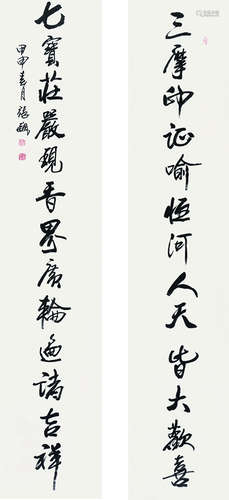 三摩印证喻恒河人天皆大歡喜
七寶莊嚴現香界廣輪遍諸吉祥
甲申春月張